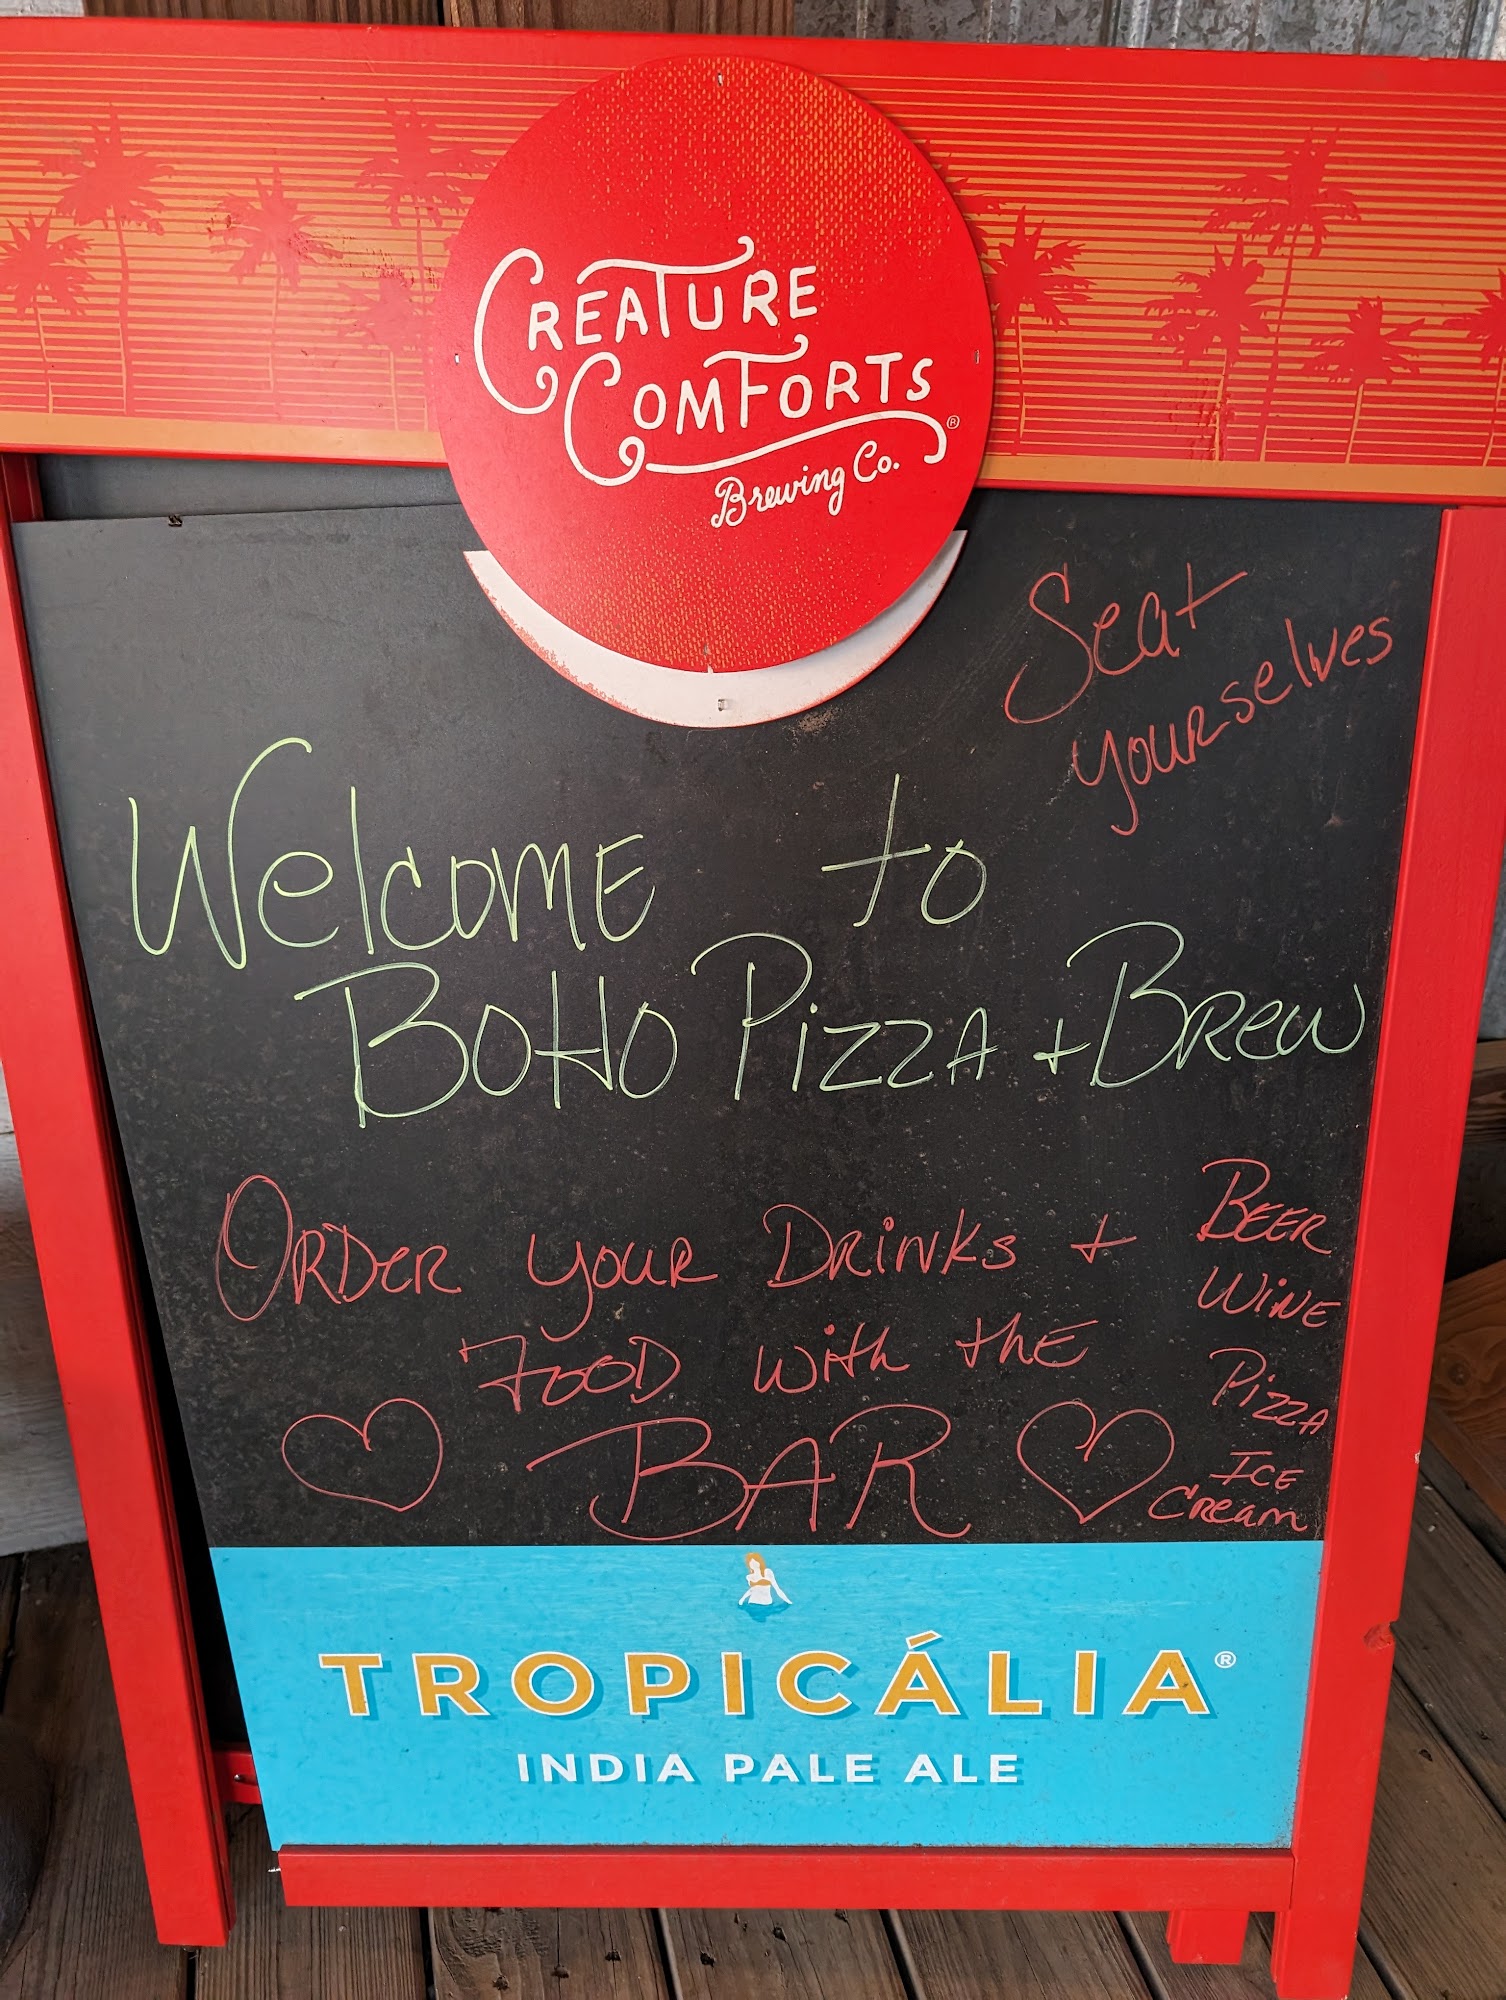 CREATURE
COMFORTS®
Brewing Co.
Seat
yourselves
Welcome to
BOHO PIZZA + BREW
ORDER YOUR DRINKS +
FOOD with thE
BAR
BEER
WINE
PIZZA
ICE
CReam
TROPICÁLIA®
INDIA PALE ALE